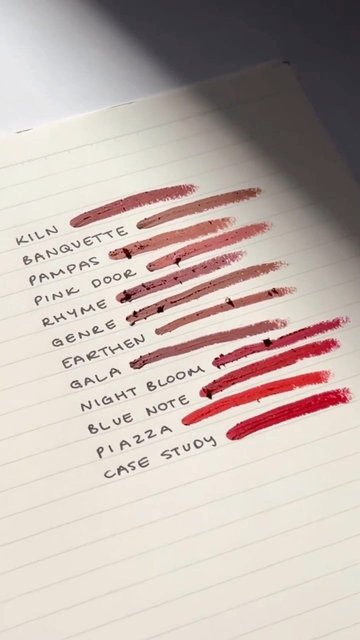 KILN
BANQUETTE
PAMPAS
PINK DOOR
RHYME
GENRE
EARTHEN
GALA
NIGHT BLOOM
BLUE NOTE
PIAZZA
CASE STUDY